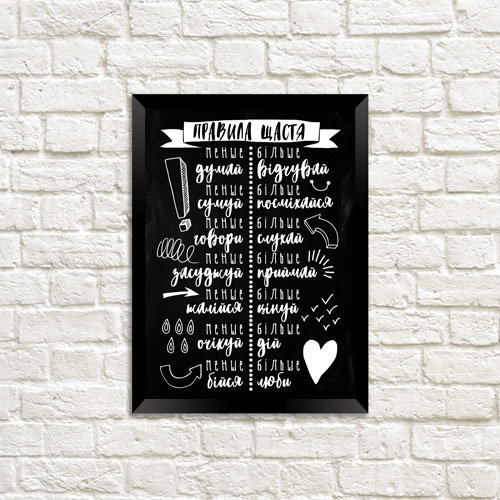 ПРАВИЛА ЩАСТЯ
менше більше
думай відчувай
менше більше
сумуй посміхайся
менше більше
говори слухай
менше більше
засуджуй приймай
менше більше
жалійся цінуй
менше більше
очікуй дій
менше більше
бійся люби